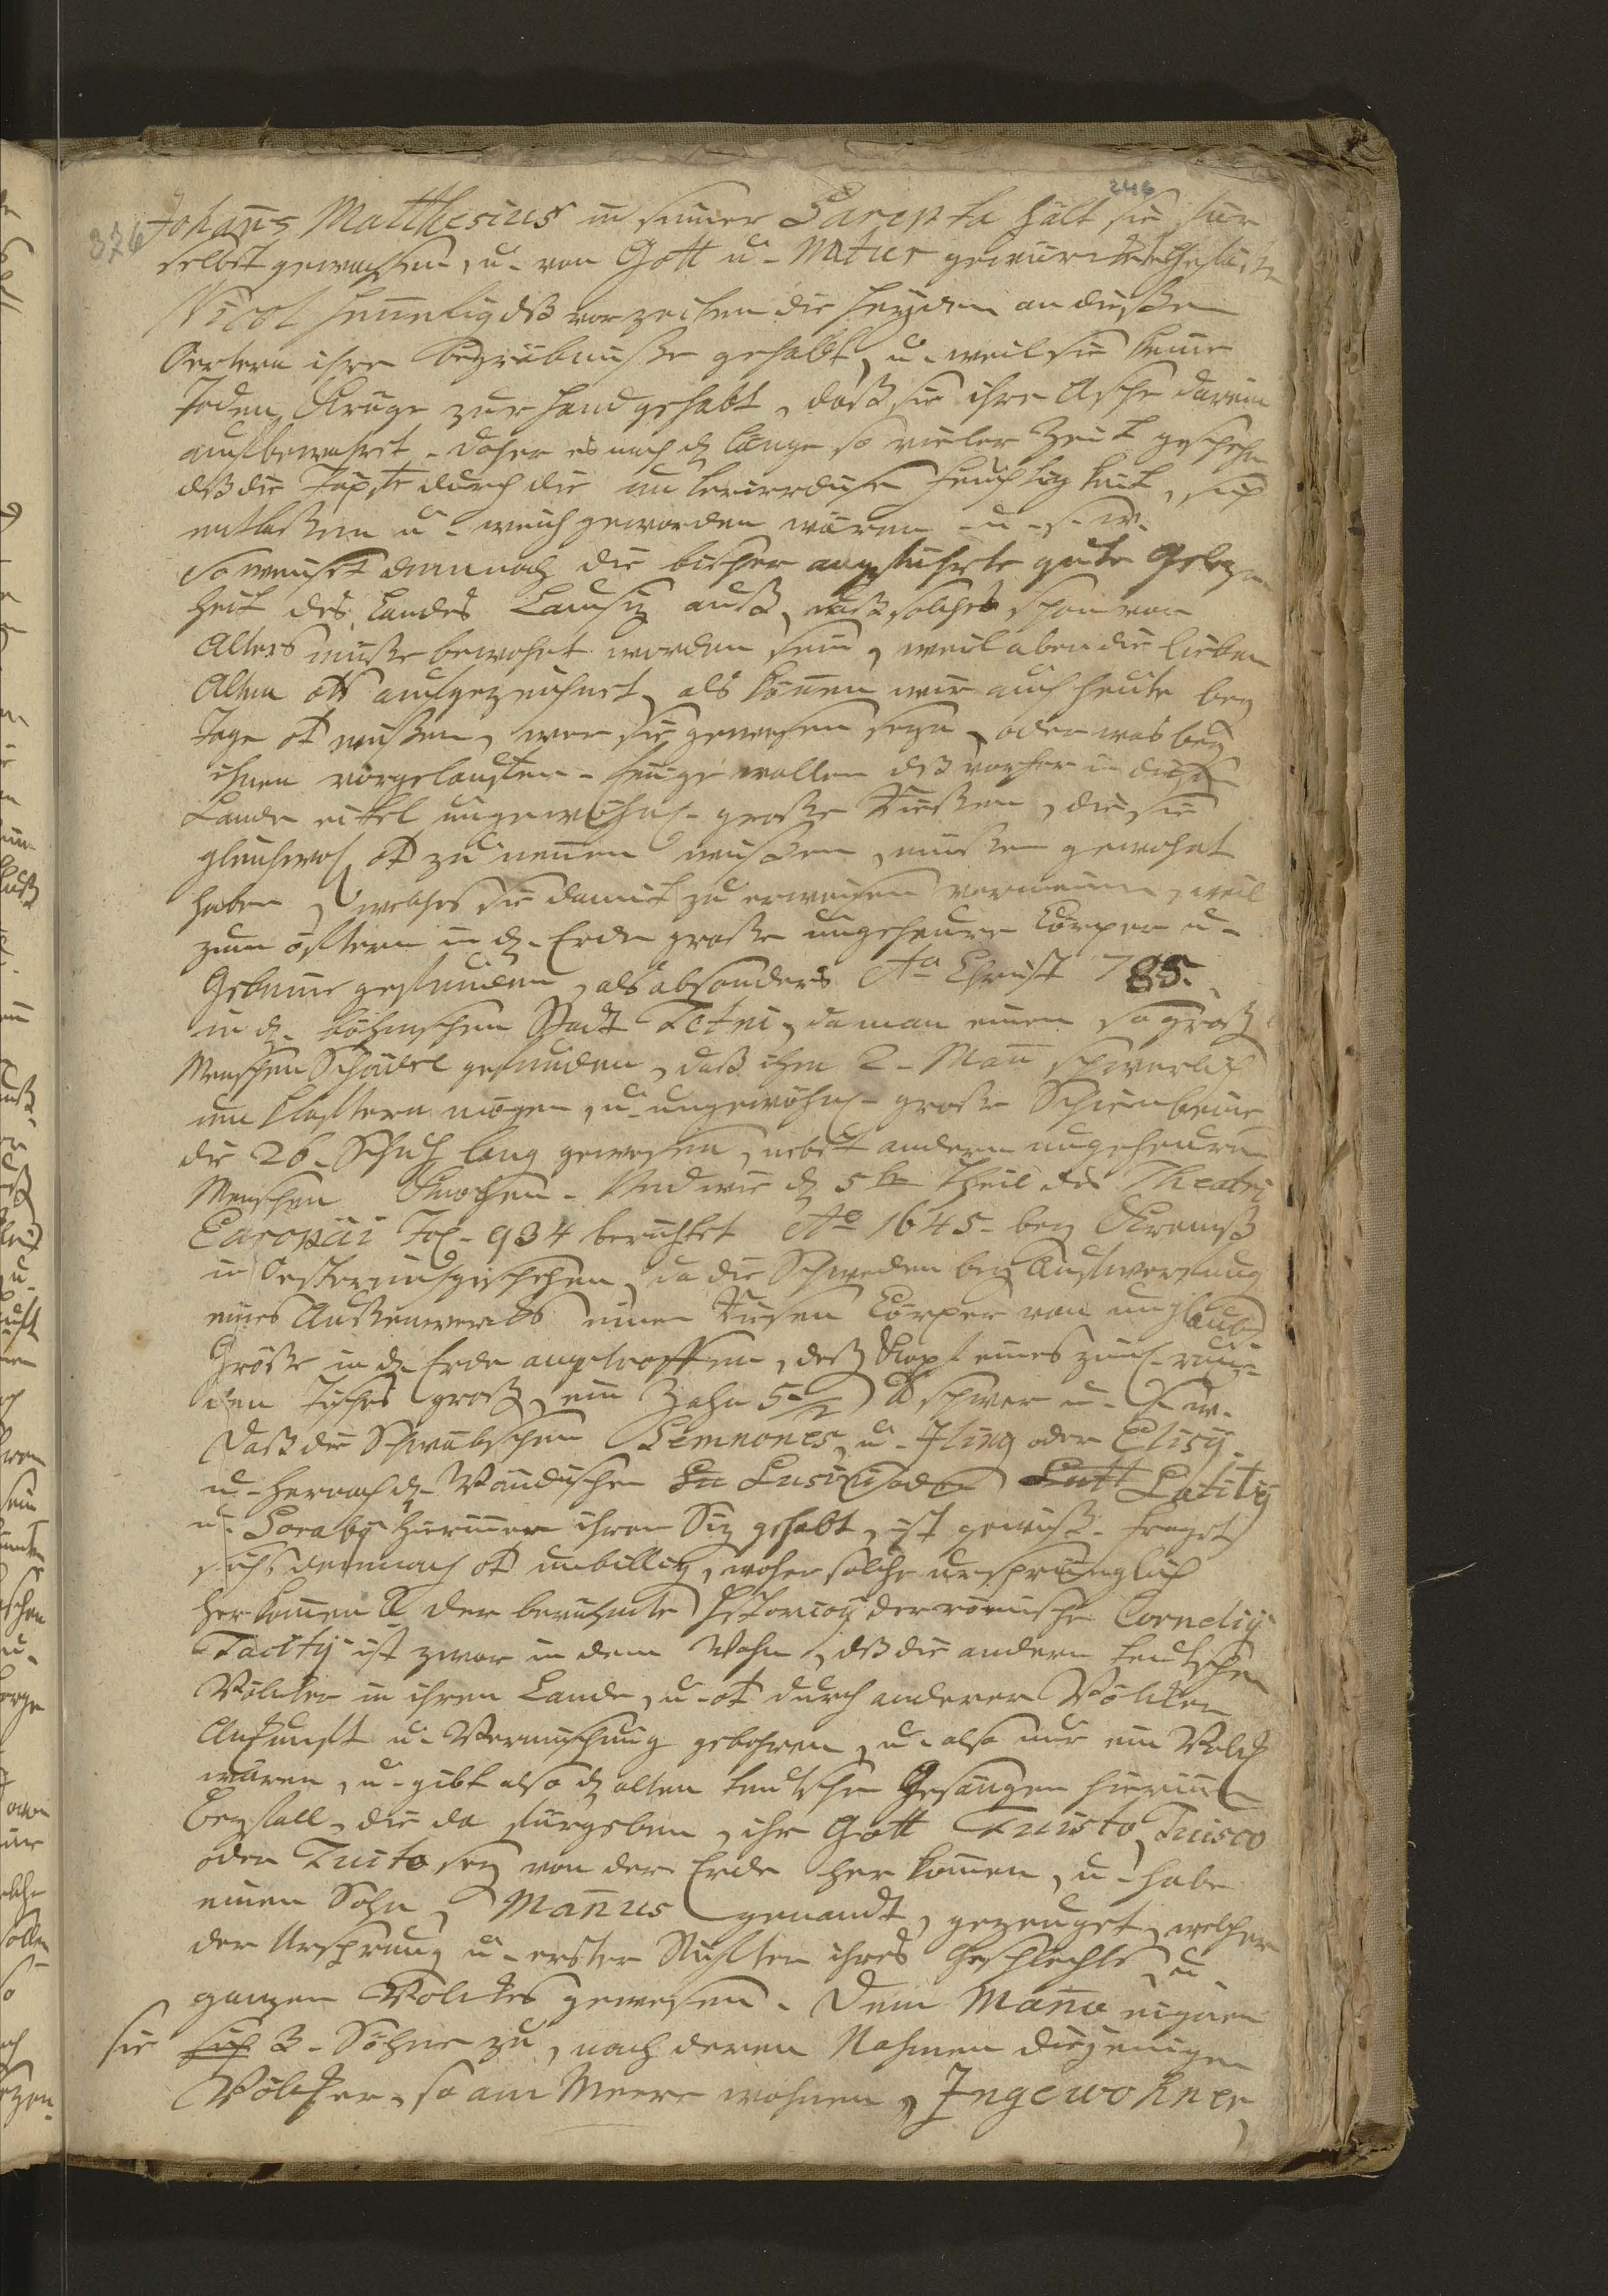 246
376
Johans Matthesius in seiner Sarepta hält sie für
selbst gewachsen, u. von Gott u. Natur gewürckte
Nicol Hennelig dß vor zeiten die Heyden an dießen
Oertern ihre begräbnuße gehabt, u. weil sie keine
Krüge zur hand gehabt, daß sie ihre Asche darein
auffbewahret. daher es nach d länge so vieler Zeit geschehen
dß die Töpffe durch die unterirrdische feuchtigkeit, sich
u. weich geworden wären u. s. w.
So weiset demnach die bisher angeführte gute Gelegen
heit des Landes Lausiz auß, daß solches schon von
Alters müße bewohnt worden sein, weil aber die lieben
Alten aufgezeichnet, als können wir auch heute bey
Tage wißen, wer sie gewesen seyn, oder was bey
ihnen vorgelauffen. Einige wollen dß vorher in diesem
Lande eitel ungewöhnl. große Rießen, die sie
gleichwol zu nennen wißen, müßen gewohnt
haben, welches sie damit zu erweisen vermeinen, weil
zum öfftern in d. Erde große ungeheure Cörper u.
Gebeine gefunden, als absonders Ao Christi 785.
in d. böhmschen Stadt Tetni, da man einen so groß
Menschen Schädel gefunden, daß ihn 2. Mann schwerlich
um klafftern mögen, u. ungewöhnl. große Schienbeine
die 26. Schuh lang gewesen, nebst andern ungeheuren
Menschen Knochen. Und wie d 5te Theil des Theatri
Europäi Fol. 934 berichtet Ao 1645. bey Krembß
in Oesterreich geschehen, da die Schweden bey Auffwerffung
eines Außenwercks einen Riesen Cörper von unglaubl.
Größe in d. Erde angetroffen, deß Kopf eines ziml. run-
den Tisches groß, ein Zahn 5 1/2 ℔ schwer u. s. w.
Daß die Schwäbschen Semnones, u. Iling oder Elisÿ.
u. hernach d. Wendischen Lu Lusici oder Lutt Lutitÿ
u. Sorabÿ hierinnen ihren Siz gehabt, ist gewiß. fraget
sichs demnach unbillig, woher solche ursprünglich
herkommen der berühmte der römische Cornelÿ
Tacitÿ ist zwar in dem Wahn, dß die andern teutschen
Völcker in ihren Lande, u. durch anderer Völcker
Ankunfft u. Vermischung gebohren, u. also nur ein Volck
wären, u. gibt also d alten teutschen Gesängen hierinnen
Beyfall, die da fürgeben, ihr Gott Tuisto, Tuisco
oder Tuito sey von der Erde her kommen, u. habe
einen Sohn, Mannus genandt, gezeuget, welcher
der Ursprung u. erster Stiffter ihres Geschlechts, u.
ganzen Volckes gewesen. Dem Manno eignen
sie sich 3. Söhne zu, nach deren Nahmen diejenigen
Völcker, so am Meere wohnen, Ingewohner,